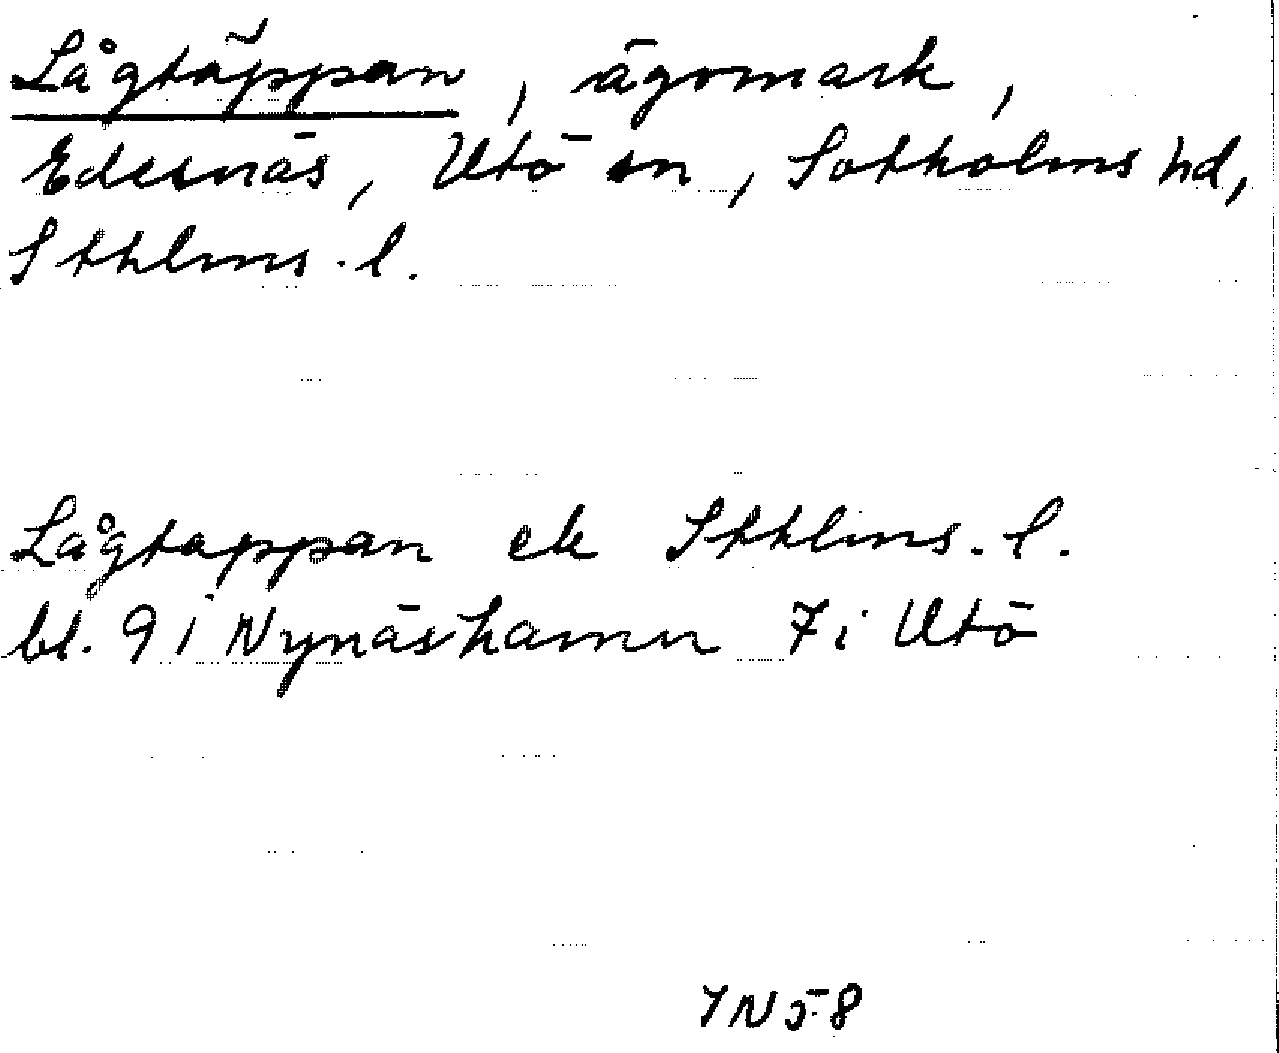 Lågtäppan, ägomark,
Edesnäs, Utö sn, Sotholms hd,
Sthlms. l.
Lågtäppan ek Sthlms. l.
bl. 9 i Nynäshamn 7 i Utö
INJ 8